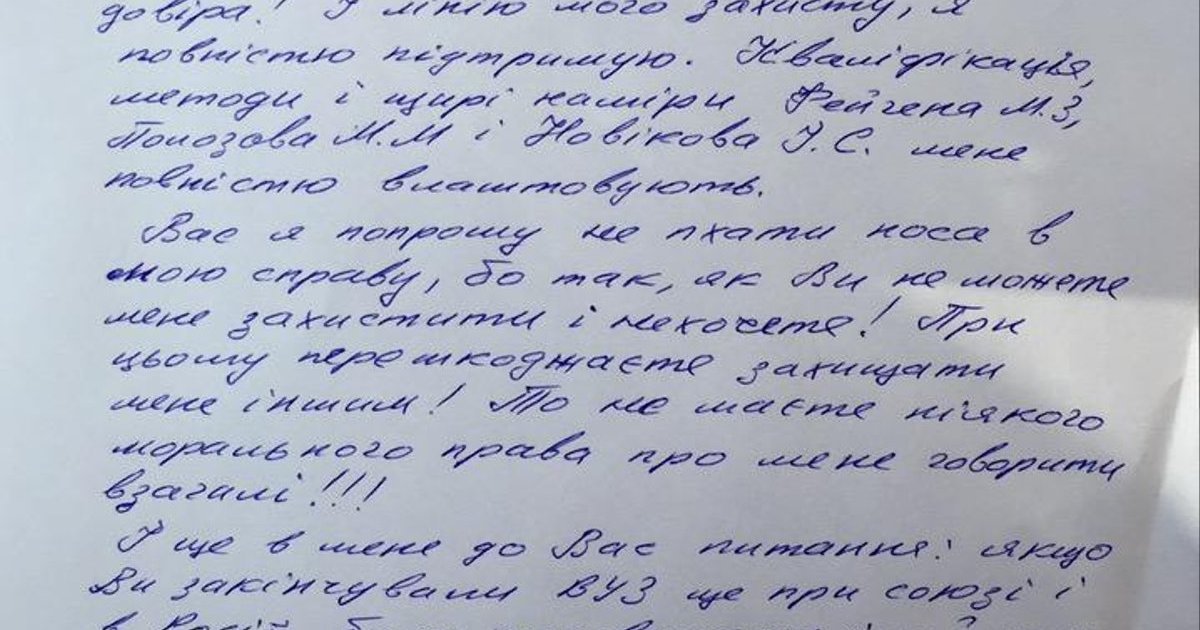 довіра! І лінію мого захисту, я
повністю підтримую. Кваліфікація,
методи і щирі наміри Фейгена М.З,
Полозова М.М і Новікова І.С. мене
повністю влаштовують.
Вас я попрошу не пхати носа в
мою справу, бо так, як Ви не можете
мене захистити і нехочете! При
цьому перешкоджаєте захищати
мене іншим! То не маєте ніякого
морального права про мене говорити
взагалі!!!
І ще в мене до Вас питання: якщо
Ви закінчували ВУЗ ще при союзі і
в